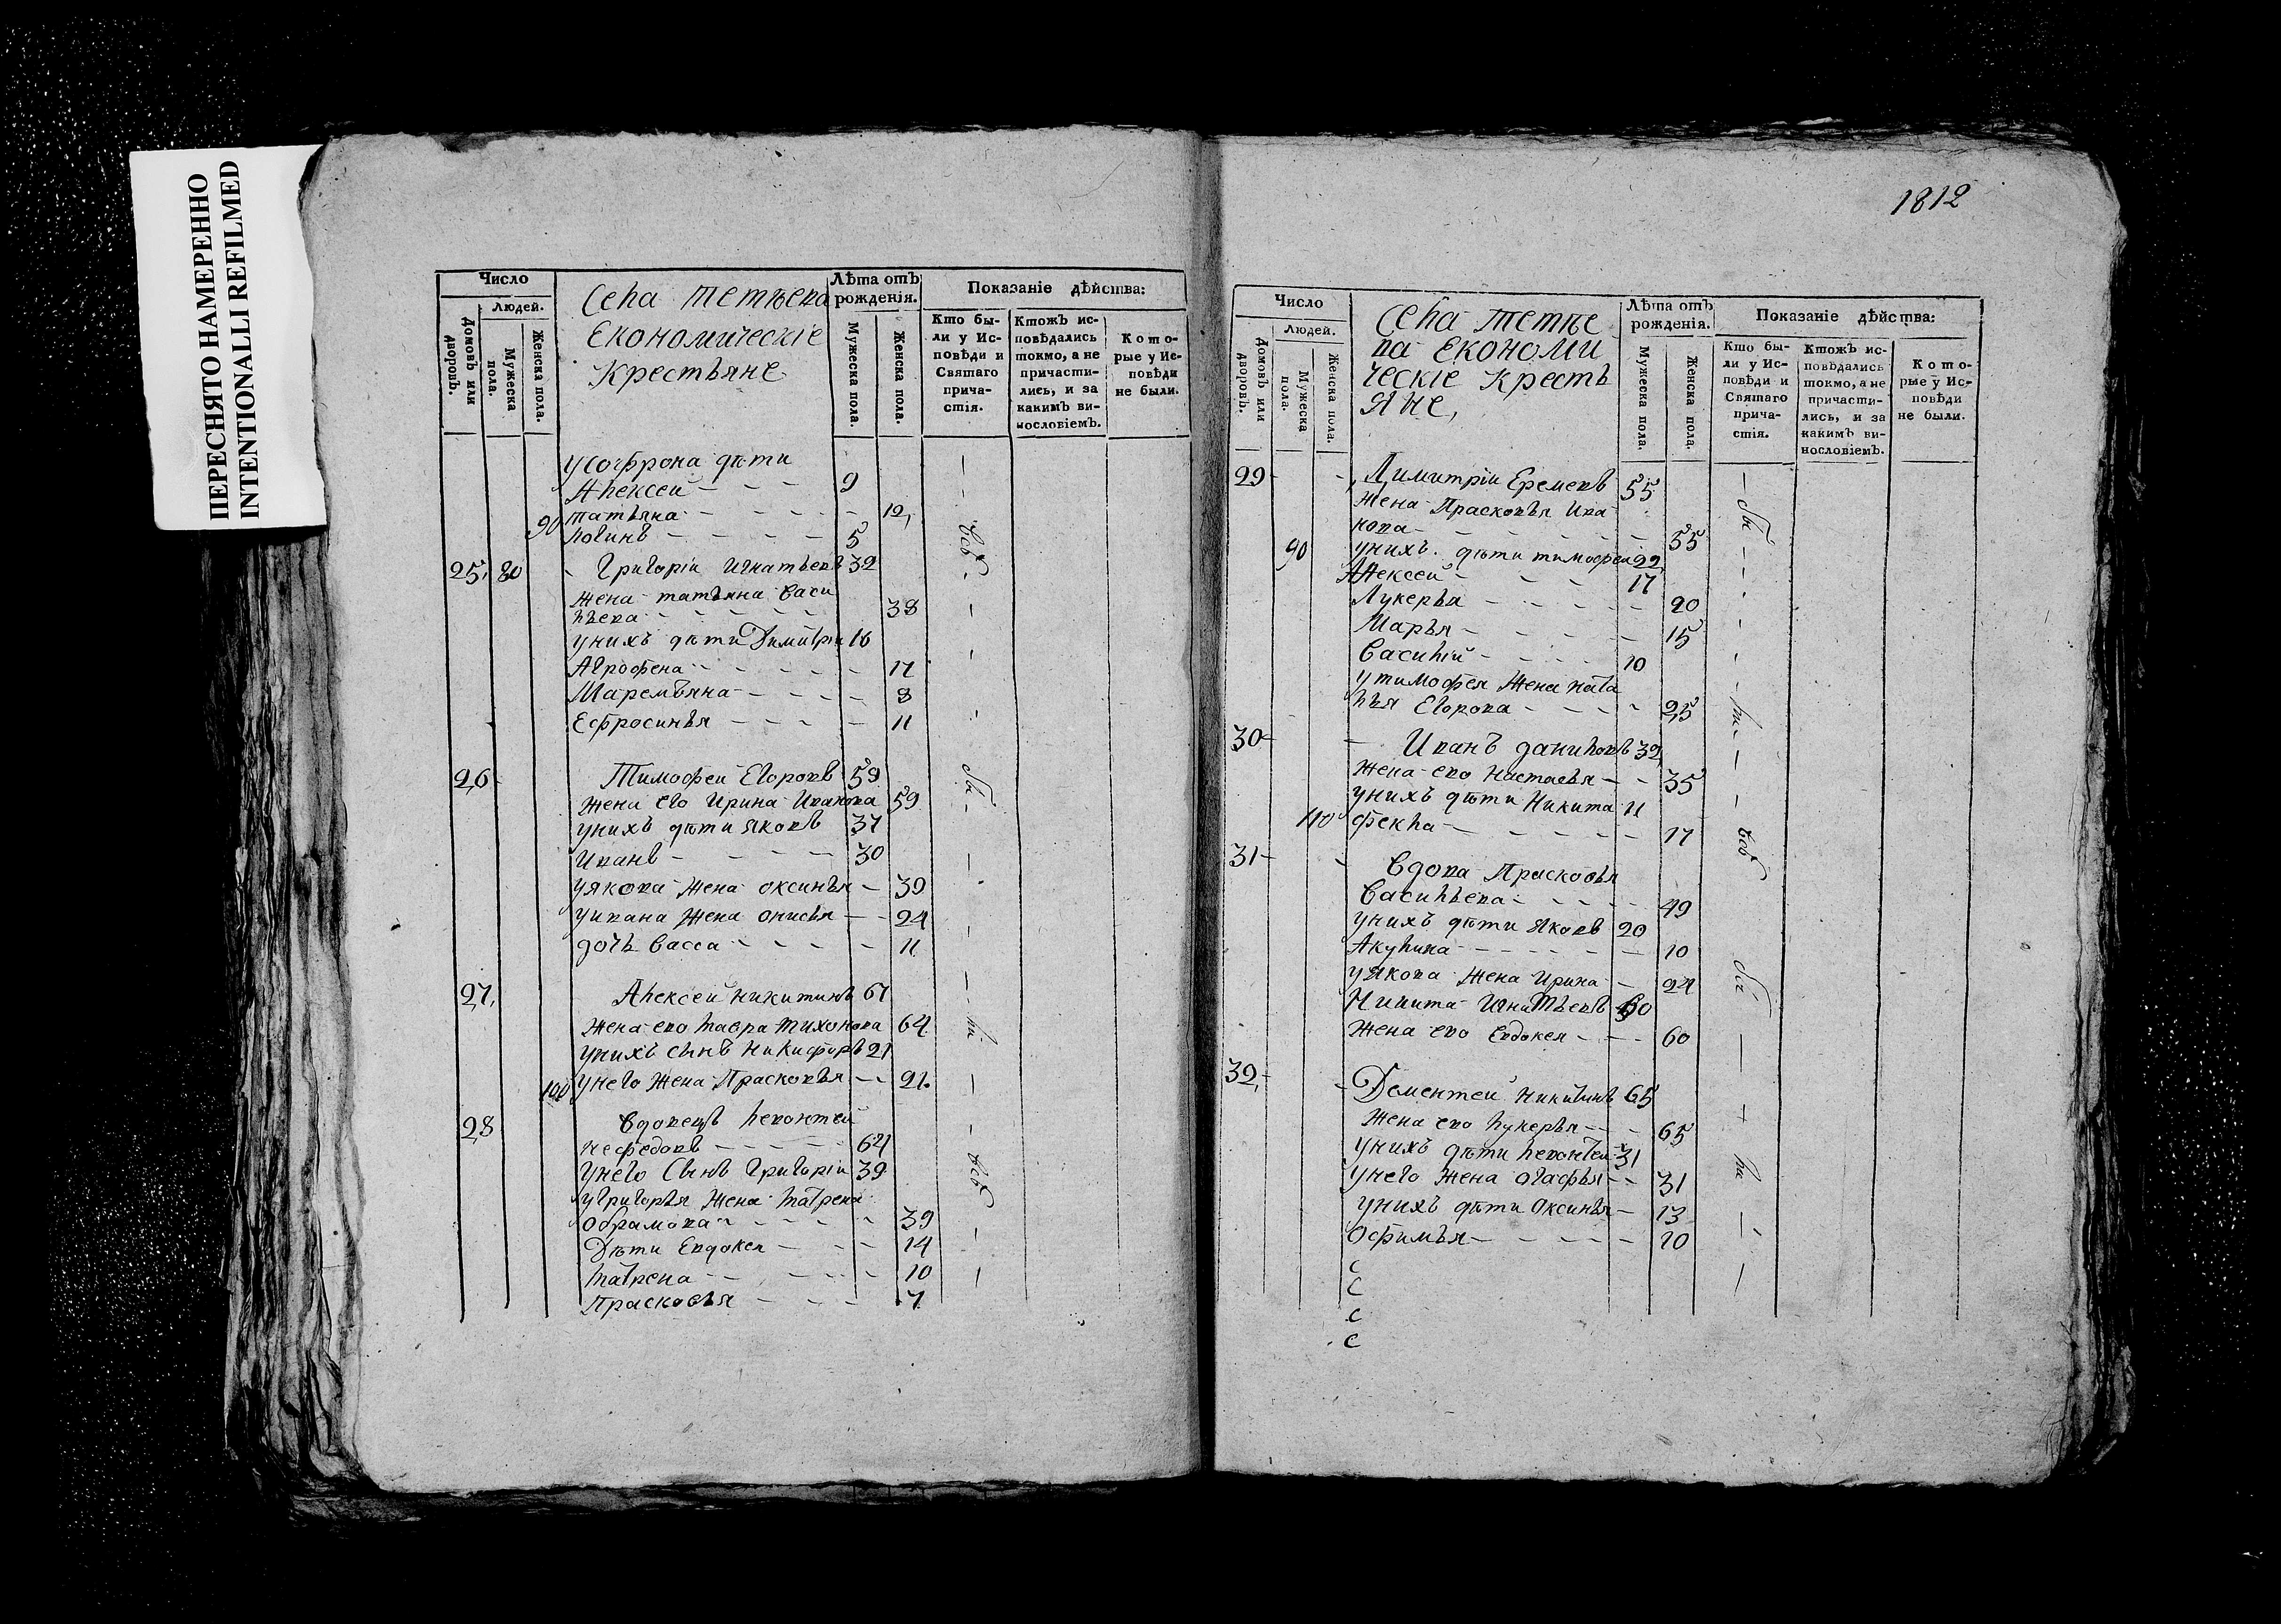 ПЕРЕСНЯТО НАМЕРЕННО
INTENTIONALLI REFILMED
1812
Число
Людей.
Домовъ или дворовъ.
Мужеска пола.
Женска пола.
Села Тетѣева
Економическіе
Крестьяне
Лѣта отъ рожденія.
Мужеска пола.
Женска пола.
Показаніе дѣйства:
Кто были у Исповѣди и Святаго причастія.
Ктожъ исповѣдались токмо, а не причастились, и за какимъ винословіемъ.
Которые у Исповѣди не были.
усофрона дѣти
Алексей 9
90 татьяна 12
логинъ 5
25 80 Григоріи Игнатьевъ 32
жена татьяна Васи
льева 38
унихъ дѣти Димитріи 16
Агрофена 17
Маремьяна 8
Ефросинья 11
26 Тимофеи Егоровъ 59
жена его Ирина Иванова 59
унихъ дѣти Яковъ 37
Иванъ 30
уякова жена оксинья 39
уивана жена онисья 24
дочь Васса 11
27 Алексей никитинъ 67
жена ево мавра тихонова 64
унихъ сынъ никифоръ 21
100 унего жена Прасковья 21
28 Вдовецъ левонтей
нефедовъ 64
унего Сынъ Григоріи 39
угригорья жена матрена
обрамова 39
Дѣти Евдокея 14
матрена 10
Прасковья 7
всѣ
бы
ли
всѣ
Число
Людей.
Домовъ или дворовъ.
Мужеска пола.
Женска пола.
Села тетѣе
ва економи
ческіе кресть
яне,
Лѣта отъ рожденія.
Мужеска пола.
Женска пола.
Показаніе дѣйства:
Кто были у Исповѣди и Святаго причастія.
Ктожъ исповѣдались токмо, а не причастились, и за какимъ винословіемъ.
Которые у Исповѣди не были.
29 Димитріи Еремевъ 55
жена Прасковья ива
нова 55
90 унихъ дѣти тимофеи 22
Алексей 17
Лукерья 20
Марья 15
Василій 10
утимофея жена ната
лья Егорова 25
30 Иванъ даниловъ 32
жена ево настасья 35
унихъ дѣти Никита 11
110 фекла 17
31 Вдова Прасковья
Васильева 49
унихъ дѣти Яковъ 20
Акулина 10
уякова жена Ирина 24
Никита Игнатьевъ 60
жена ево Евдокея 60
32 Дементей никитинъ 65
жена ево лукерья 65
унихъ дѣти левонтеи 31
унего жена огафья 31
унихъ дѣти Оксинья 13
Офимья 10
с
с
с
с
бы
ли
всѣ
бы
ли